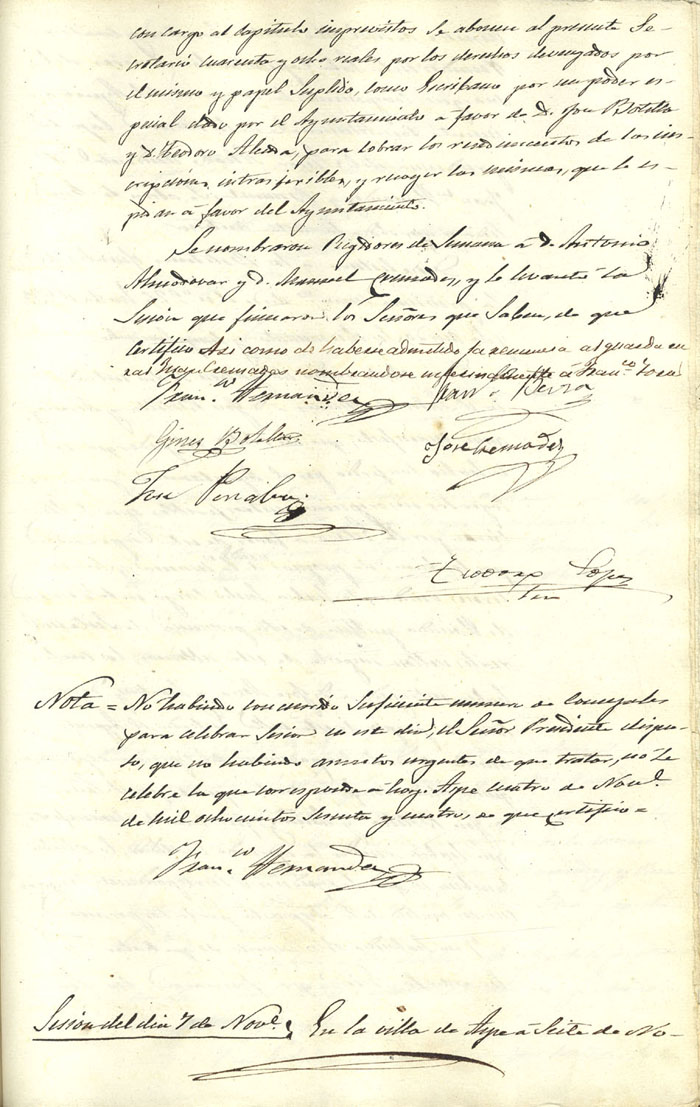 con cargo al Capitulo imprevistos se abonen al presente Se-
cretario cuarenta y ocho reales por los derechos devengados por
el mismo y papel Suplido, como Escribano por un poder es-
pecial dado por el Ayuntamiento a favor de D. Jose Botella
y D. Teodoro Alcada, para cobrar los rendimientos de las ins-
cripciones intrasferibles, y recoger las mismas, que le es-
pidan a favor del Ayuntamiento.
Se nombraron Regidores de Semana á D. Antonio
Almodovar y D. Manuel Cremades, y se levantó la
Sesion que firmaron los Señores que Saben, de que
Certifico Asi como de haberse admitido la renuncia al guarda
Cremades nombrandose a Fran.co
Fran.co Hernandez
Gines Botella
Jose Cremades
Jose Penalva
Teodoro Lopez
Nota = No habiendo concurrido Suficiente numero de Concejales
para celebrar Sesion en este dia, el Señor Presidente dispu-
so, que no habiendo asuntos urgentes de que tratar, no Se
celebre la que corresponde á hoy. Aspe cuatro de Nov.e
de mil ochocientos Sesenta y cuatro, de que certifico =
Fran.co Hernandez
Sesion del dia 7 de Nov.e En la villa de Aspe á Siete de No-